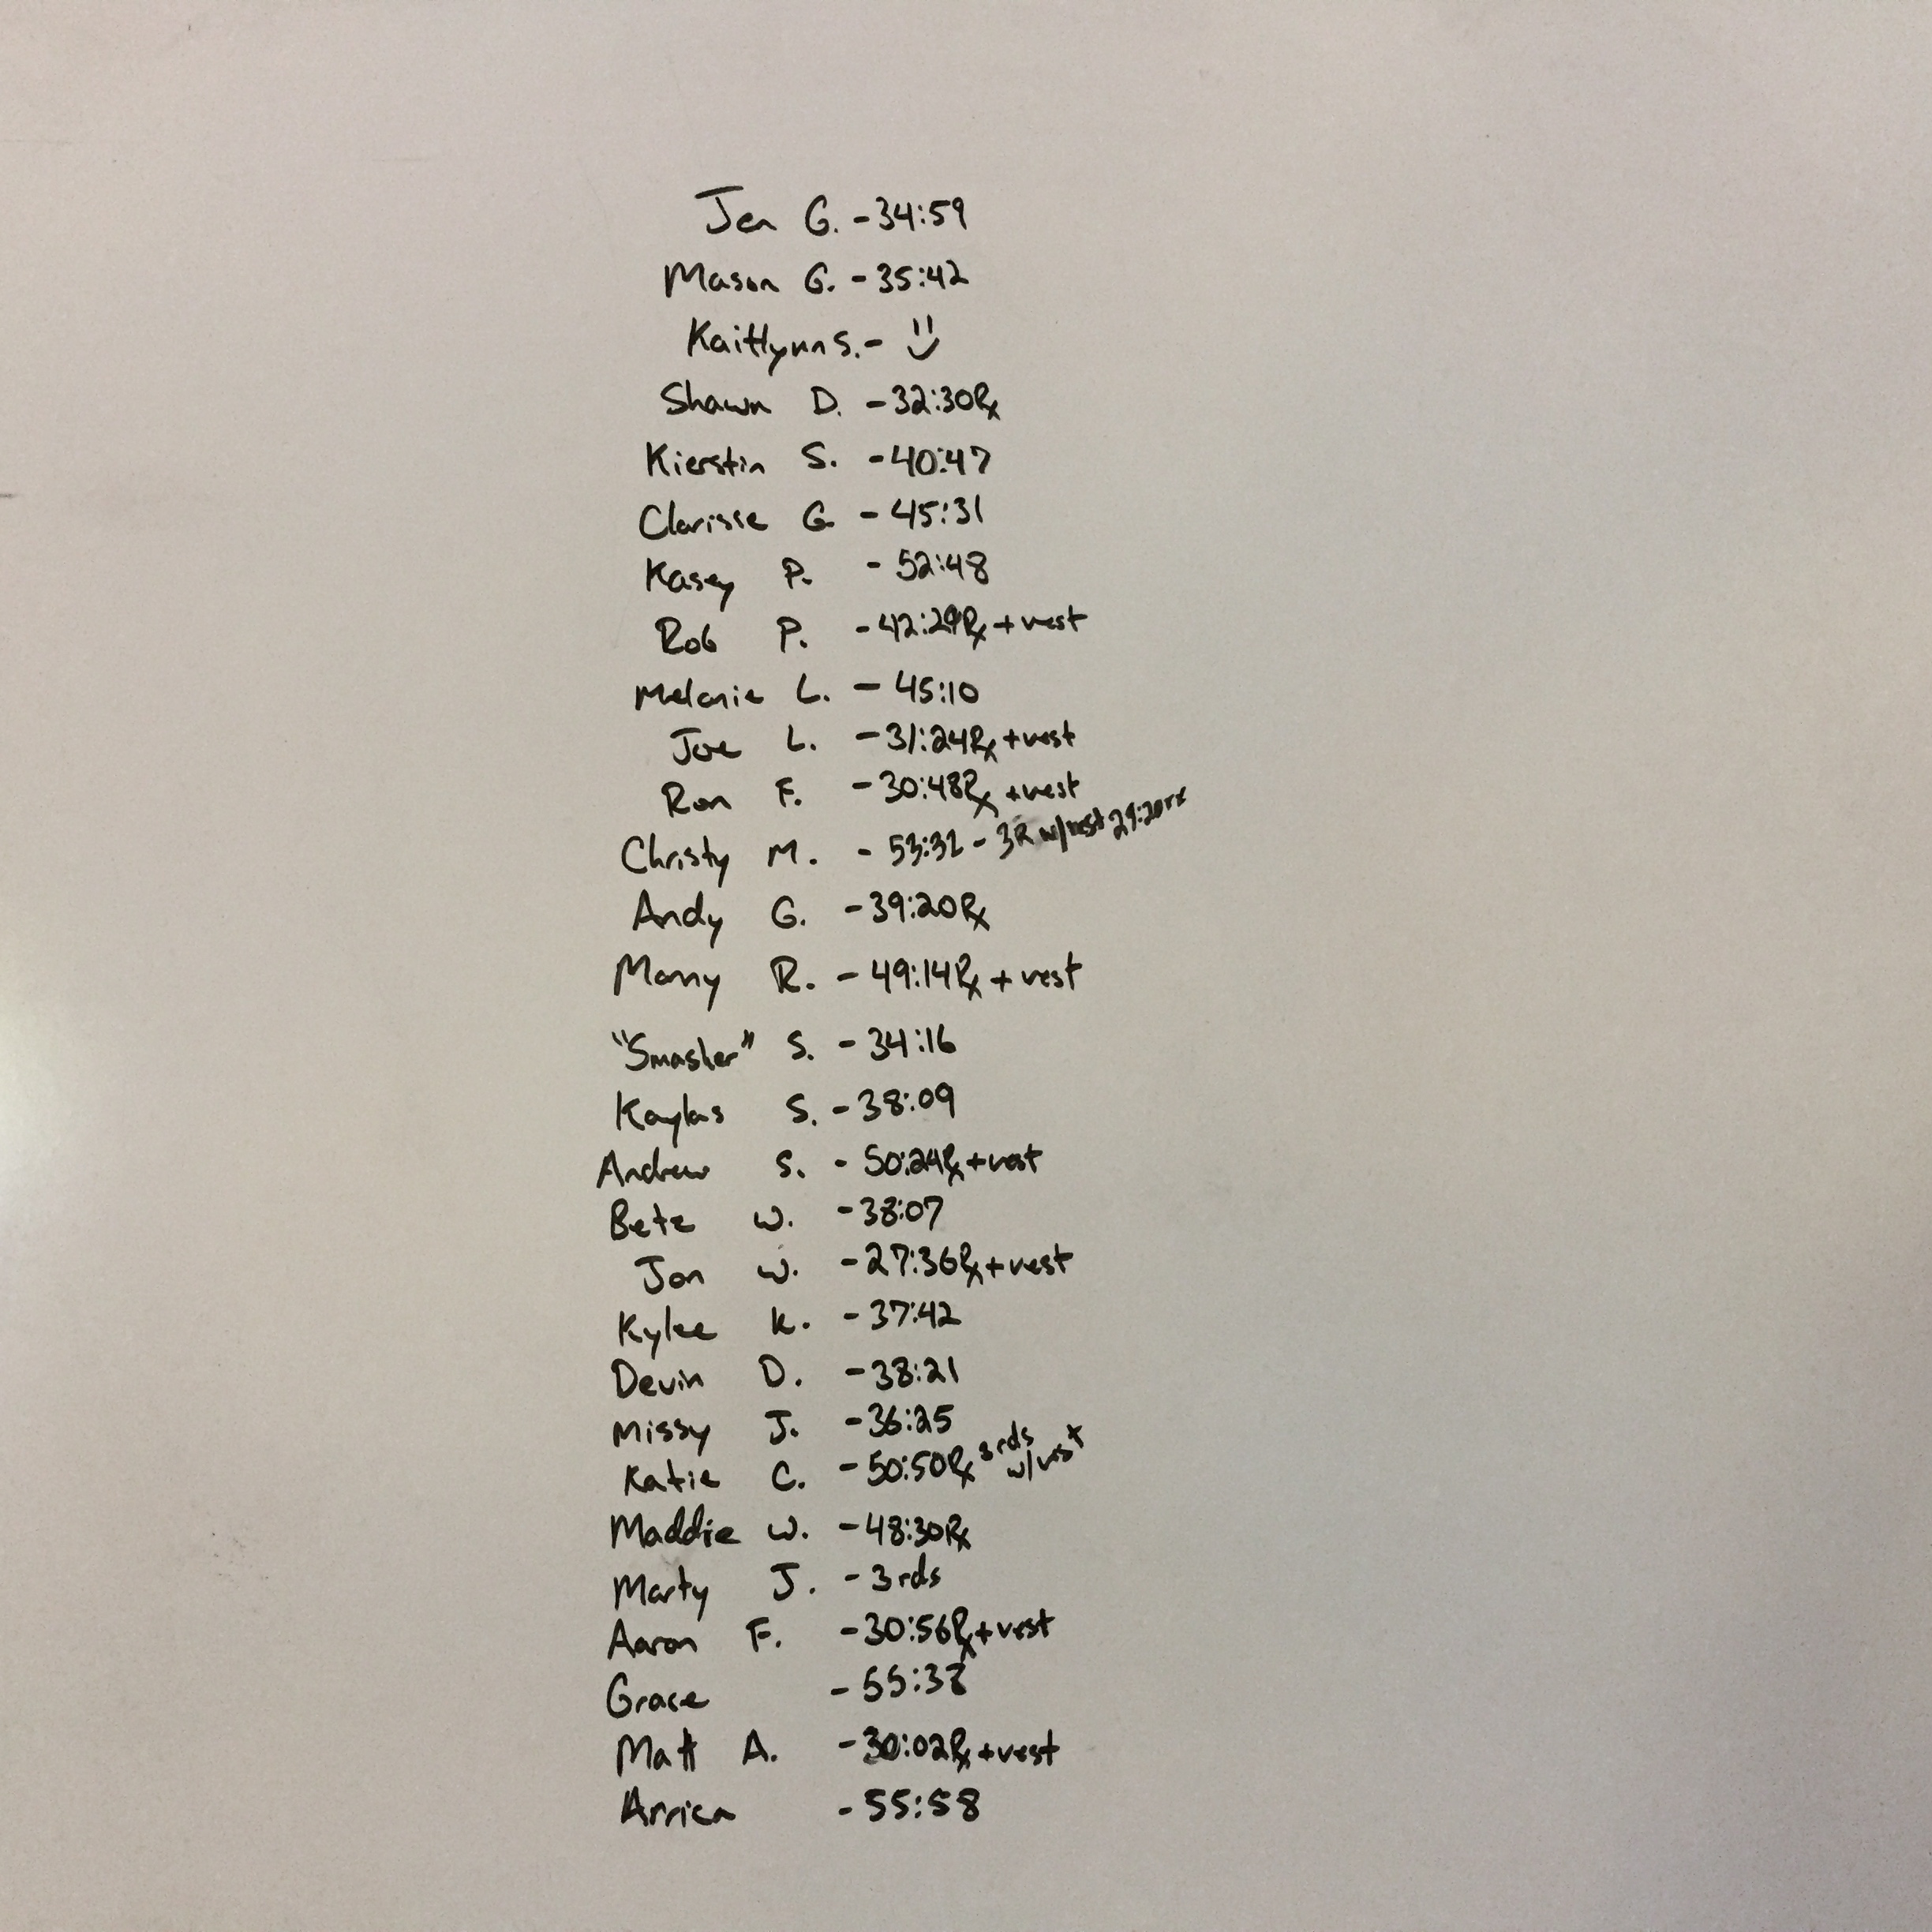 Jen G. - 34:59
Mason G. - 35:42
Kaitlynn S. -
Shawn D. - 32:30 Rx
Kierstin S. - 40:47
Clarisse G. - 45:31
Kasey P. - 52:48
Rob P. - 42:29 Rx + vest
Melanie L. - 45:10
Joe L. - 31:24 Rx + vest
Ron F. - 30:48 Rx + vest
Christy M. - 53:32 - 3R w/vest
Andy G. - 39:20 Rx
Manny R. - 49:14 Rx + vest
"Smasher" S. - 34:16
S. - 38:09
Andrew S. - 50:24 Rx + vest
W. - 38:07
Jon W. - 27:36 Rx + vest
Kylee K. - 37:42
Devin D. - 38:21
Missy J. - 36:25
Katie C. - 50:50 Rx 3 rds w/vest
Maddie W. - 48:30 Rx
Marty J. - 3 rds
Aaron F. - 30:56 Rx + vest
Grace - 55:38
Matt A. - 30:02 Rx + vest
Arrica - 55:58